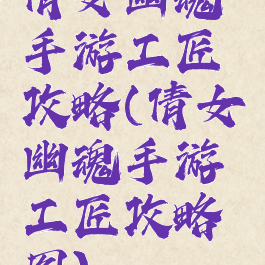 倩女幽魂
手游工匠
攻略(倩女
幽魂手游
工匠攻略
图)